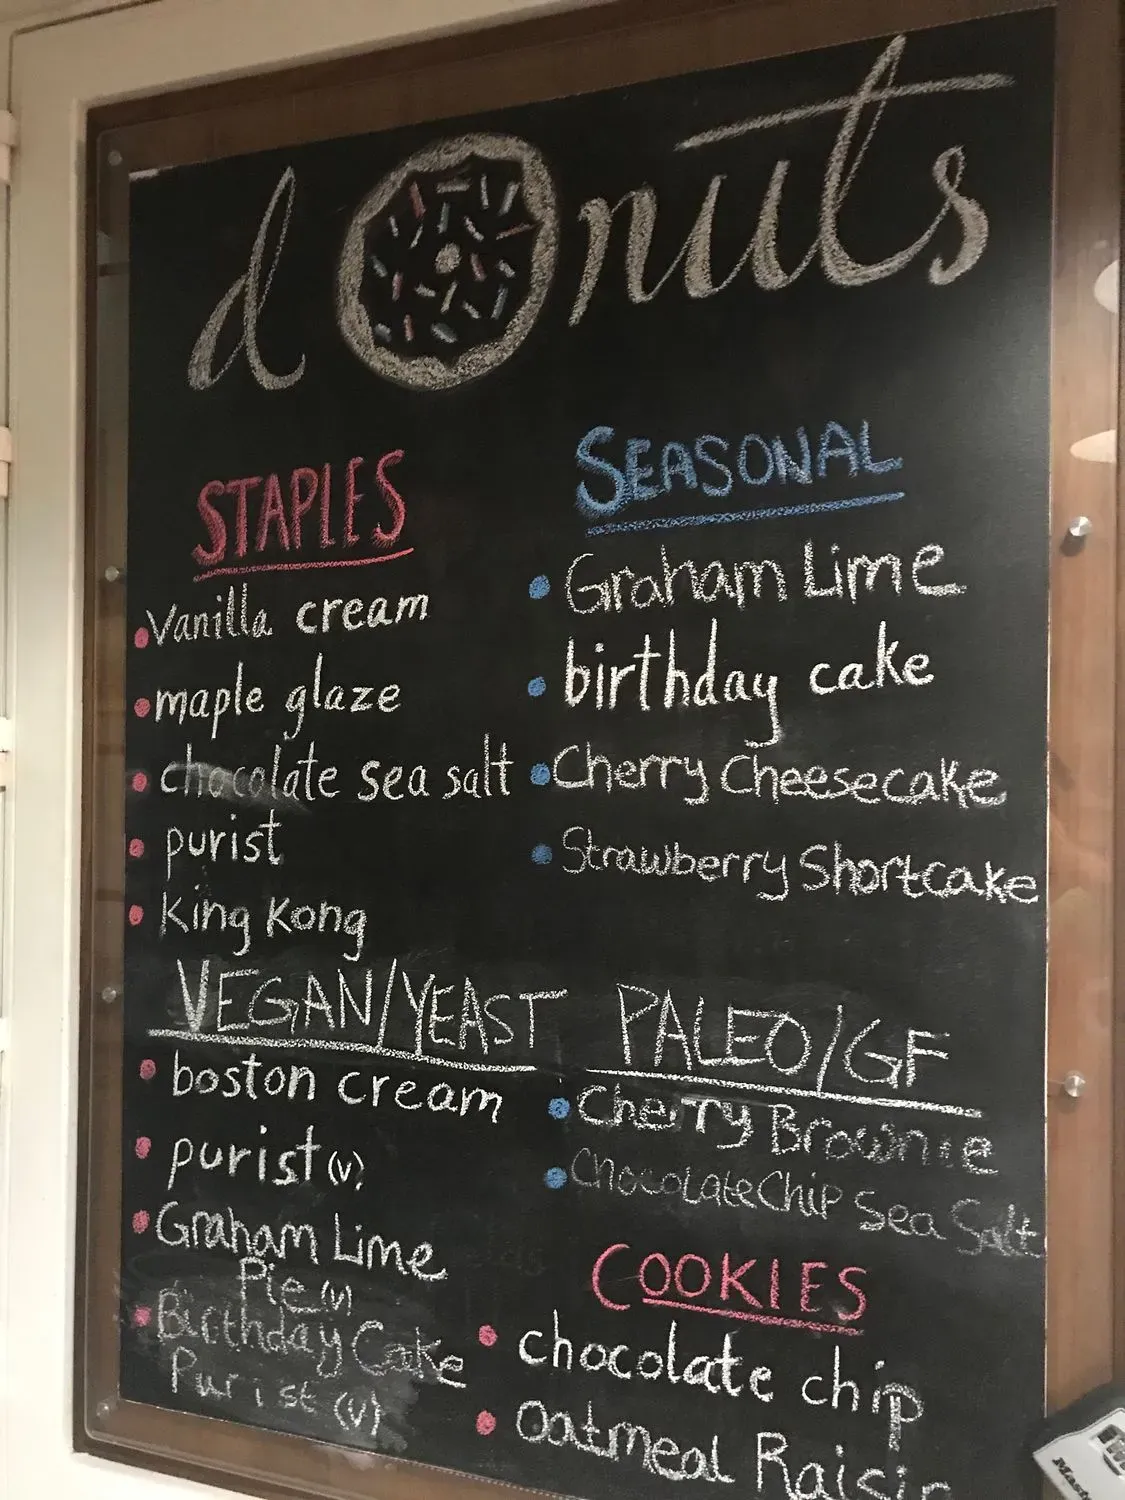 donuts
STAPLES
Vanilla cream
maple glaze
chocolate sea salt
purist
King Kong
SEASONAL
Graham Lime
birthday cake
Cherry Cheesecake
Strawberry Shortcake
VEGAN/YEAST
boston cream
purist (v)
Graham Lime
Pie (v)
Birthday Cake
Purist (v)
PALEO/GF
Cherry Brownie
Chocolate Chip Sea Salt
COOKIES
chocolate chip
Oatmeal Raisin